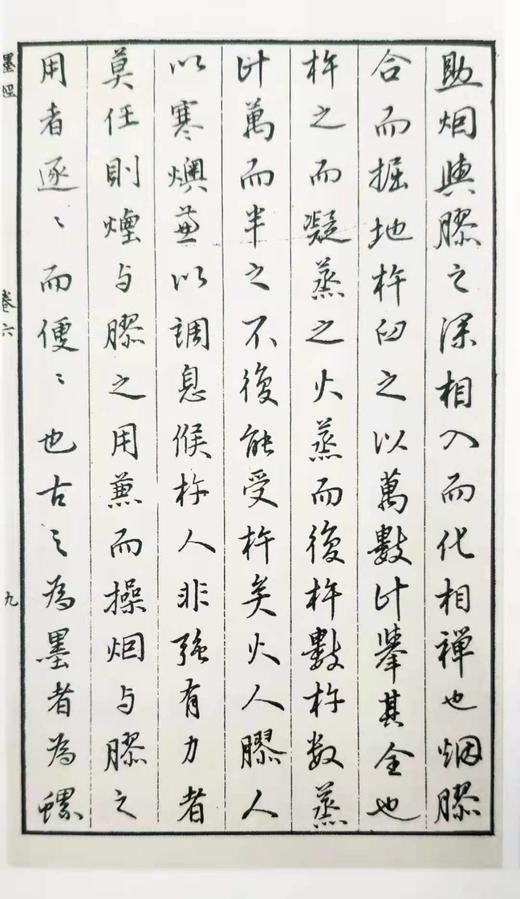 助烟與膠之深相入而化相禪也烟膠
合而掘地杵臼之以萬數计擧其全也
杵之而凝蒸之火蒸而後杵數杵数蒸
计萬而半之不復能受杵矣火人膠人
以寒燠並以調息候杵人非強有力者
莫任則煙与膠之用兼而操烟与膠之
用者逐〻而便〻也古之為墨者為螺
墨經
卷六
九